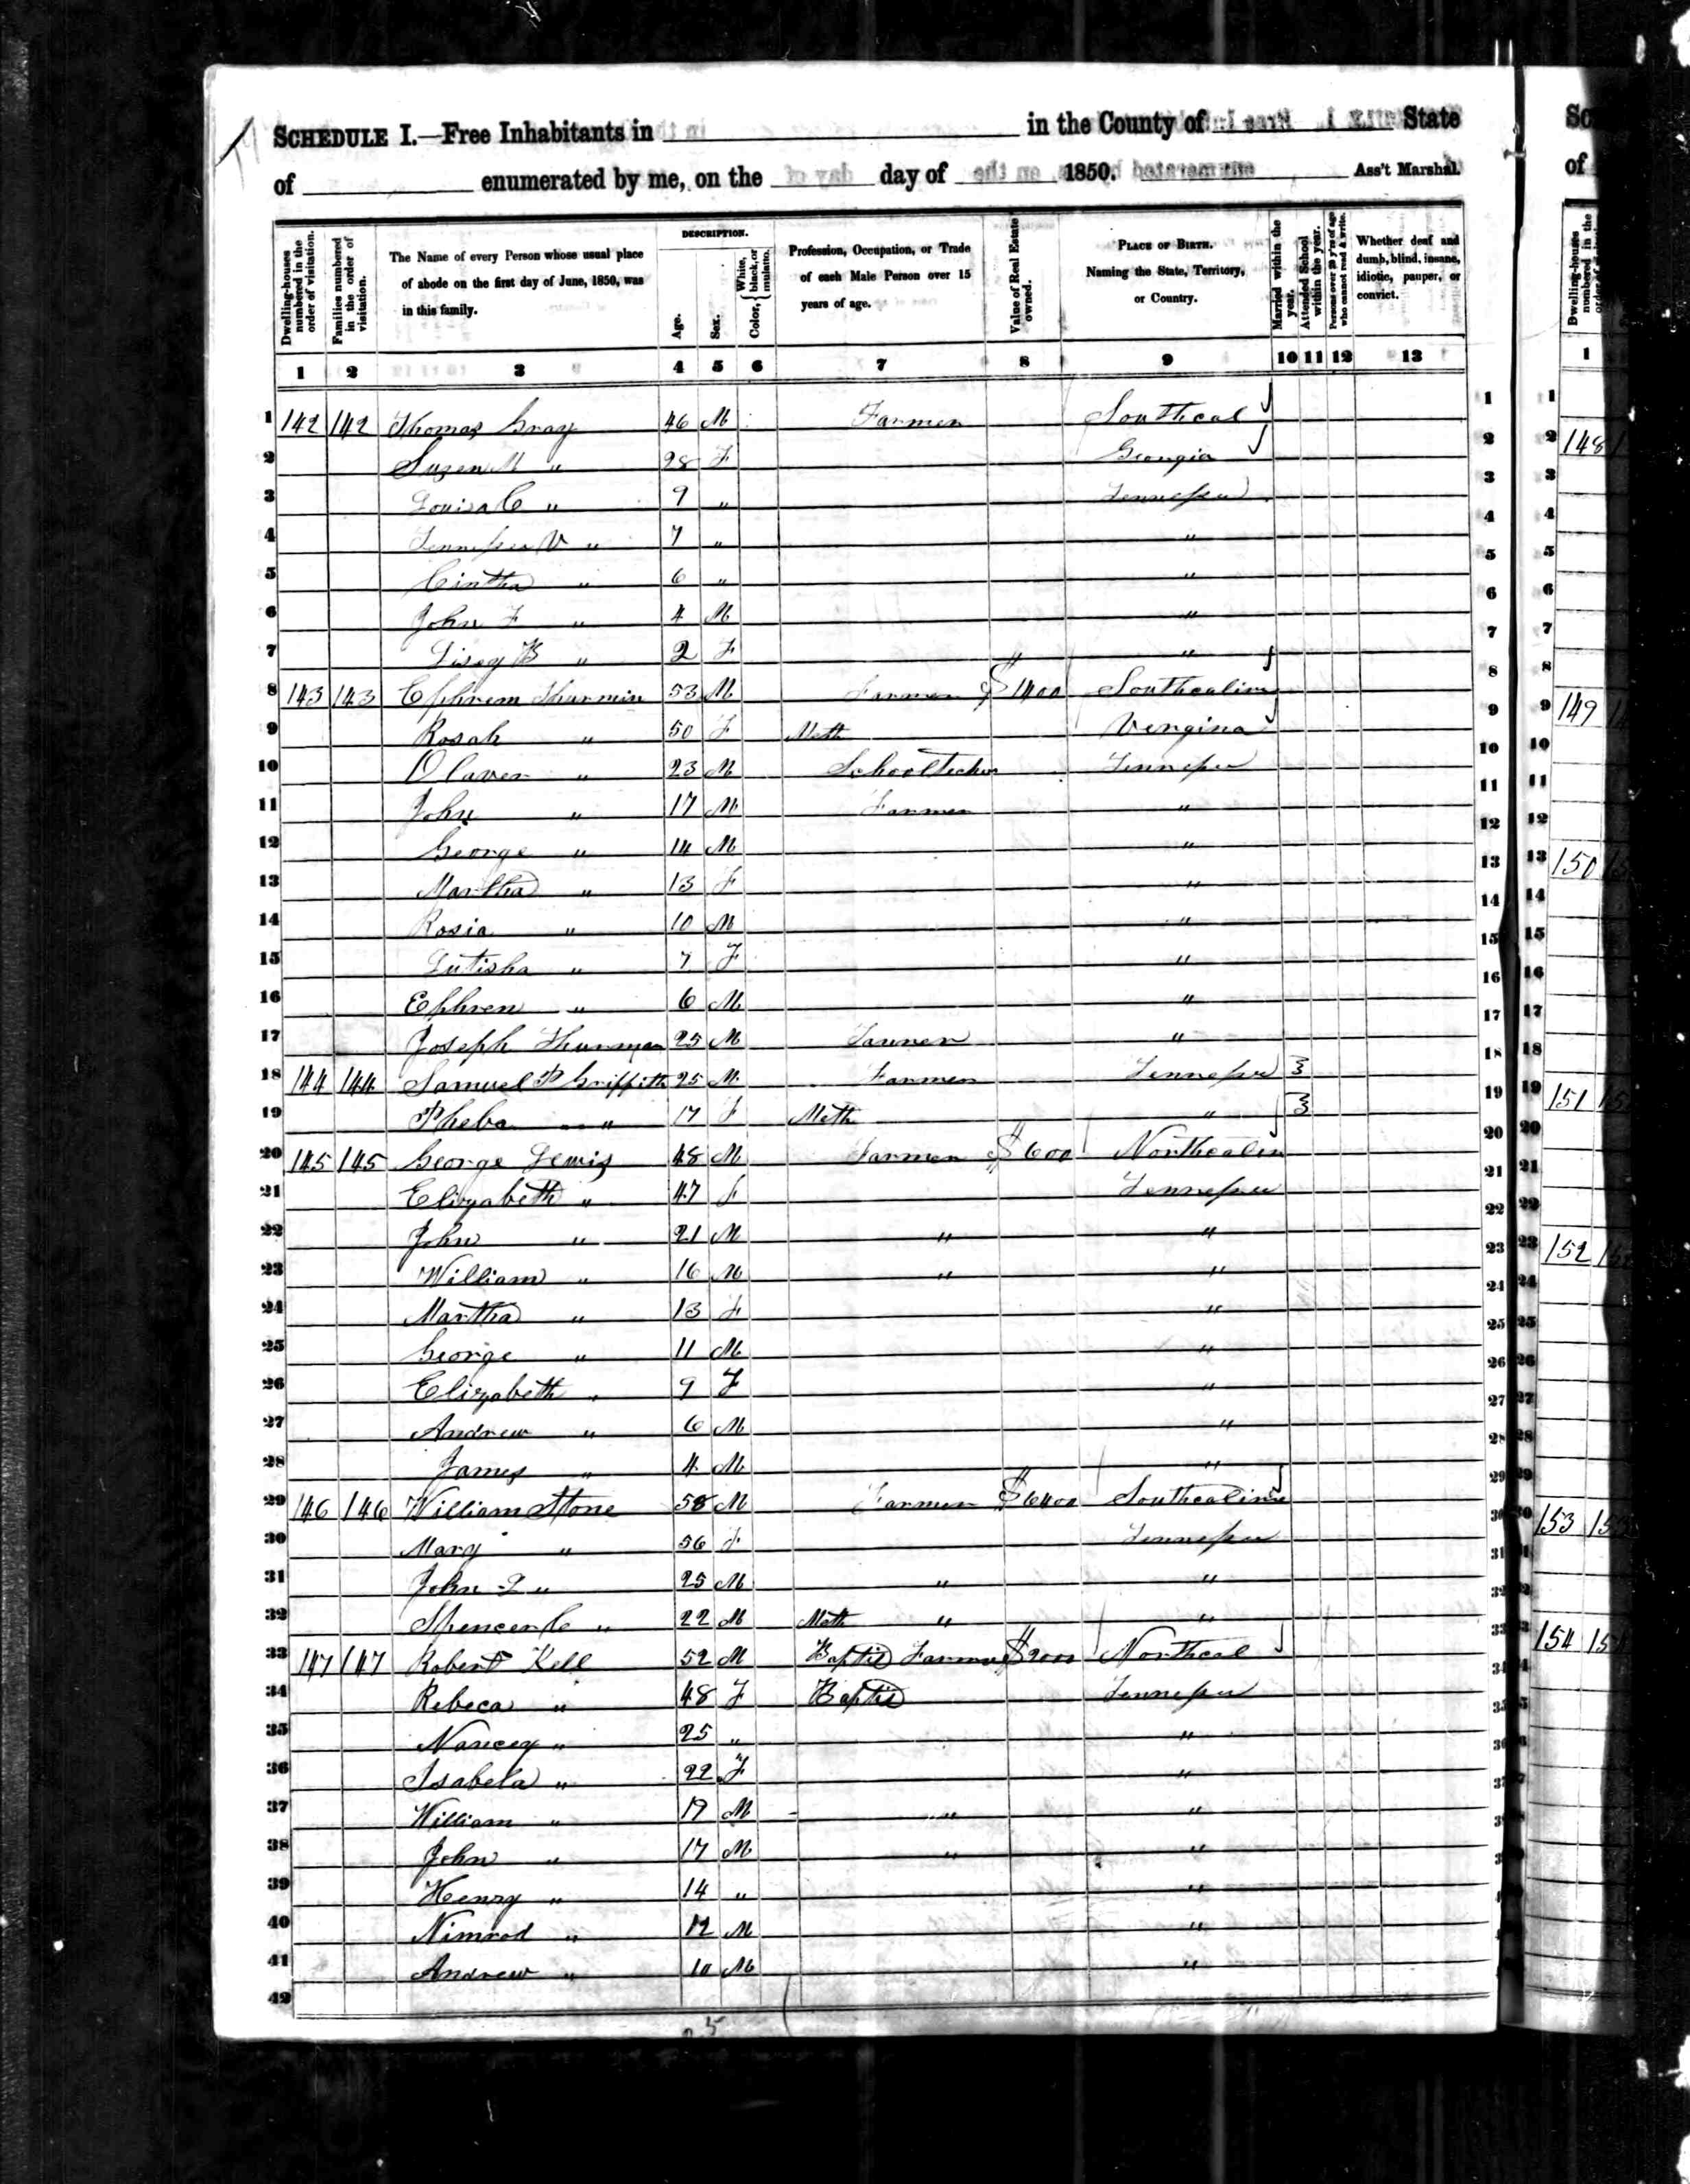 SCHEDULE I.—Free Inhabitants in in the County of State
of enumerated by me, on the day of 1850. Ass't Marshal.
Dwelling-houses numbered in the order of visitation.
Families numbered in the order of visitation.
The Name of every Person whose usual place of abode on the first day of June, 1850, was in this family.
DESCRIPTION.
Age.
Sex.
Color, { White, black, or mulatto.
Profession, Occupation, or Trade of each Male Person over 15 years of age.
Value of Real Estate owned.
PLACE OF BIRTH. Naming the State, Territory, or Country.
Married within the year.
Attended School within the year.
Persons over 20 y'rs of age who cannot read & write.
Whether deaf and dumb, blind, insane, idiotic, pauper, or convict.
1 2 3 4 5 6 7 8 9 10 11 12 13
1 142 142 Thomas Gray 46 M Farmer Southcal 1
2 Suzen M " 28 F Georgia 2
3 Louisa C " 9 " Tennessee 3
4 Tennessee V " 7 " " 4
5 Cintha " 6 " " 5
6 John F " 4 M " 6
7 B " 2 F " 7
8 143 143 Ephrem Thurmin 53 M Farmer $1400 Southcalina 8
9 Rosah " 50 F Meth Vergina 9
10 Olaver " 23 M School Techer Tennessee 10
11 John " 17 M Farmer " 11
12 George " 14 M " 12
13 Martha " 13 F " 13
14 Rosia " 10 M " 14
15 Lutisha " 7 F " 15
16 Ephren " 6 M " 16
17 Joseph Thurman 25 M " 17
18 144 144 Samuel P Griffith 25 M Farmer Tennessee 3 18
19 Pheba " 17 F Meth " 3 19
20 145 145 George Lewis 48 M Farmer $600 Northcalin 20
21 Elizabeth " 47 F Tennessee 21
22 John " 21 M " " 22
23 William " 16 M " " 23
24 Martha " 13 F " 24
25 George " 11 M " 25
26 Elizabeth " 9 F " 26
27 Andrew " 6 M " 27
28 James " 4 M " 28
29 146 146 William Stone 58 M Farmer $6400 Southcalina 29
30 Mary " 56 F Tennessee 30
31 John L " 25 M " " 31
32 Spencer C " 22 M Meth " " 32
33 147 147 Robert Kell 52 M Baptis Farmer $2000 Northcal 33
34 Rebeca " 48 F Baptis Tennessee 34
35 Nancey " 25 " " 35
36 Isabela " 22 F "
37 William " 19 M " "
38 John " 17 M " "
39 Henry " 14 " "
40 Nimrod " 12 M "
41 Andrew " 10 M "
42
148
149
150
151
152
153
154